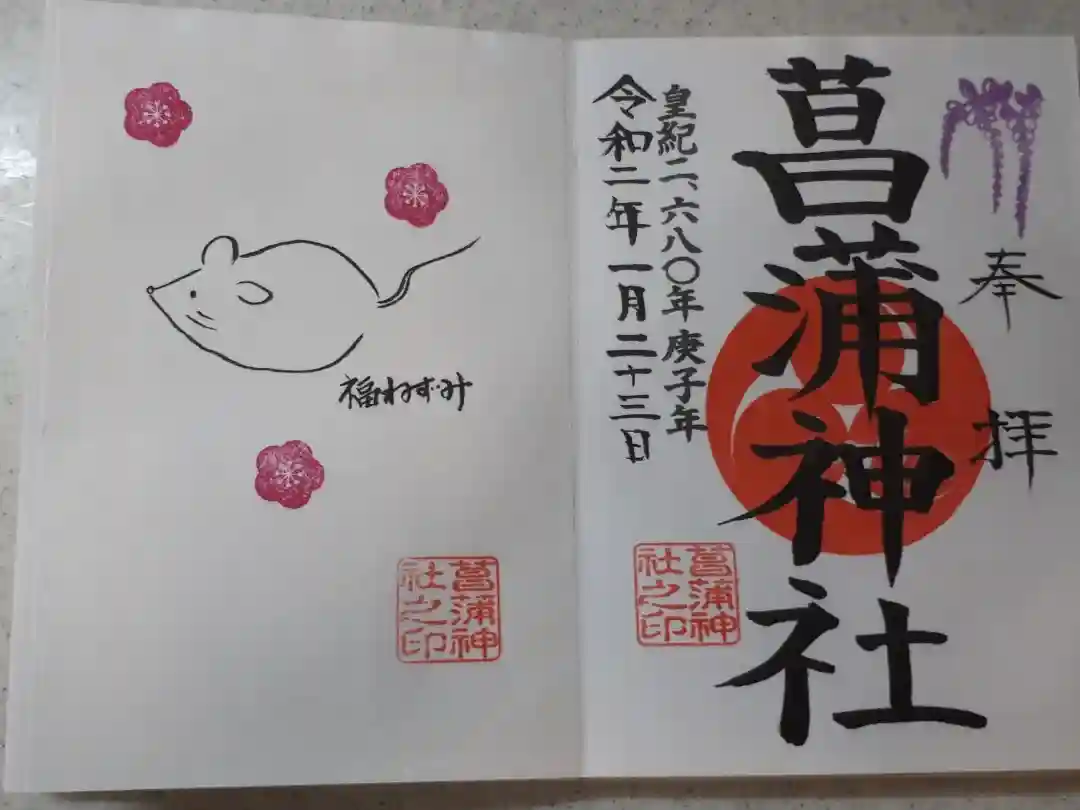 奉拝
菖蒲神社
皇紀二、六八〇年庚子年
令和二年一月二十三日
菖蒲神
社之印
福ねずみ
菖蒲神
社之印